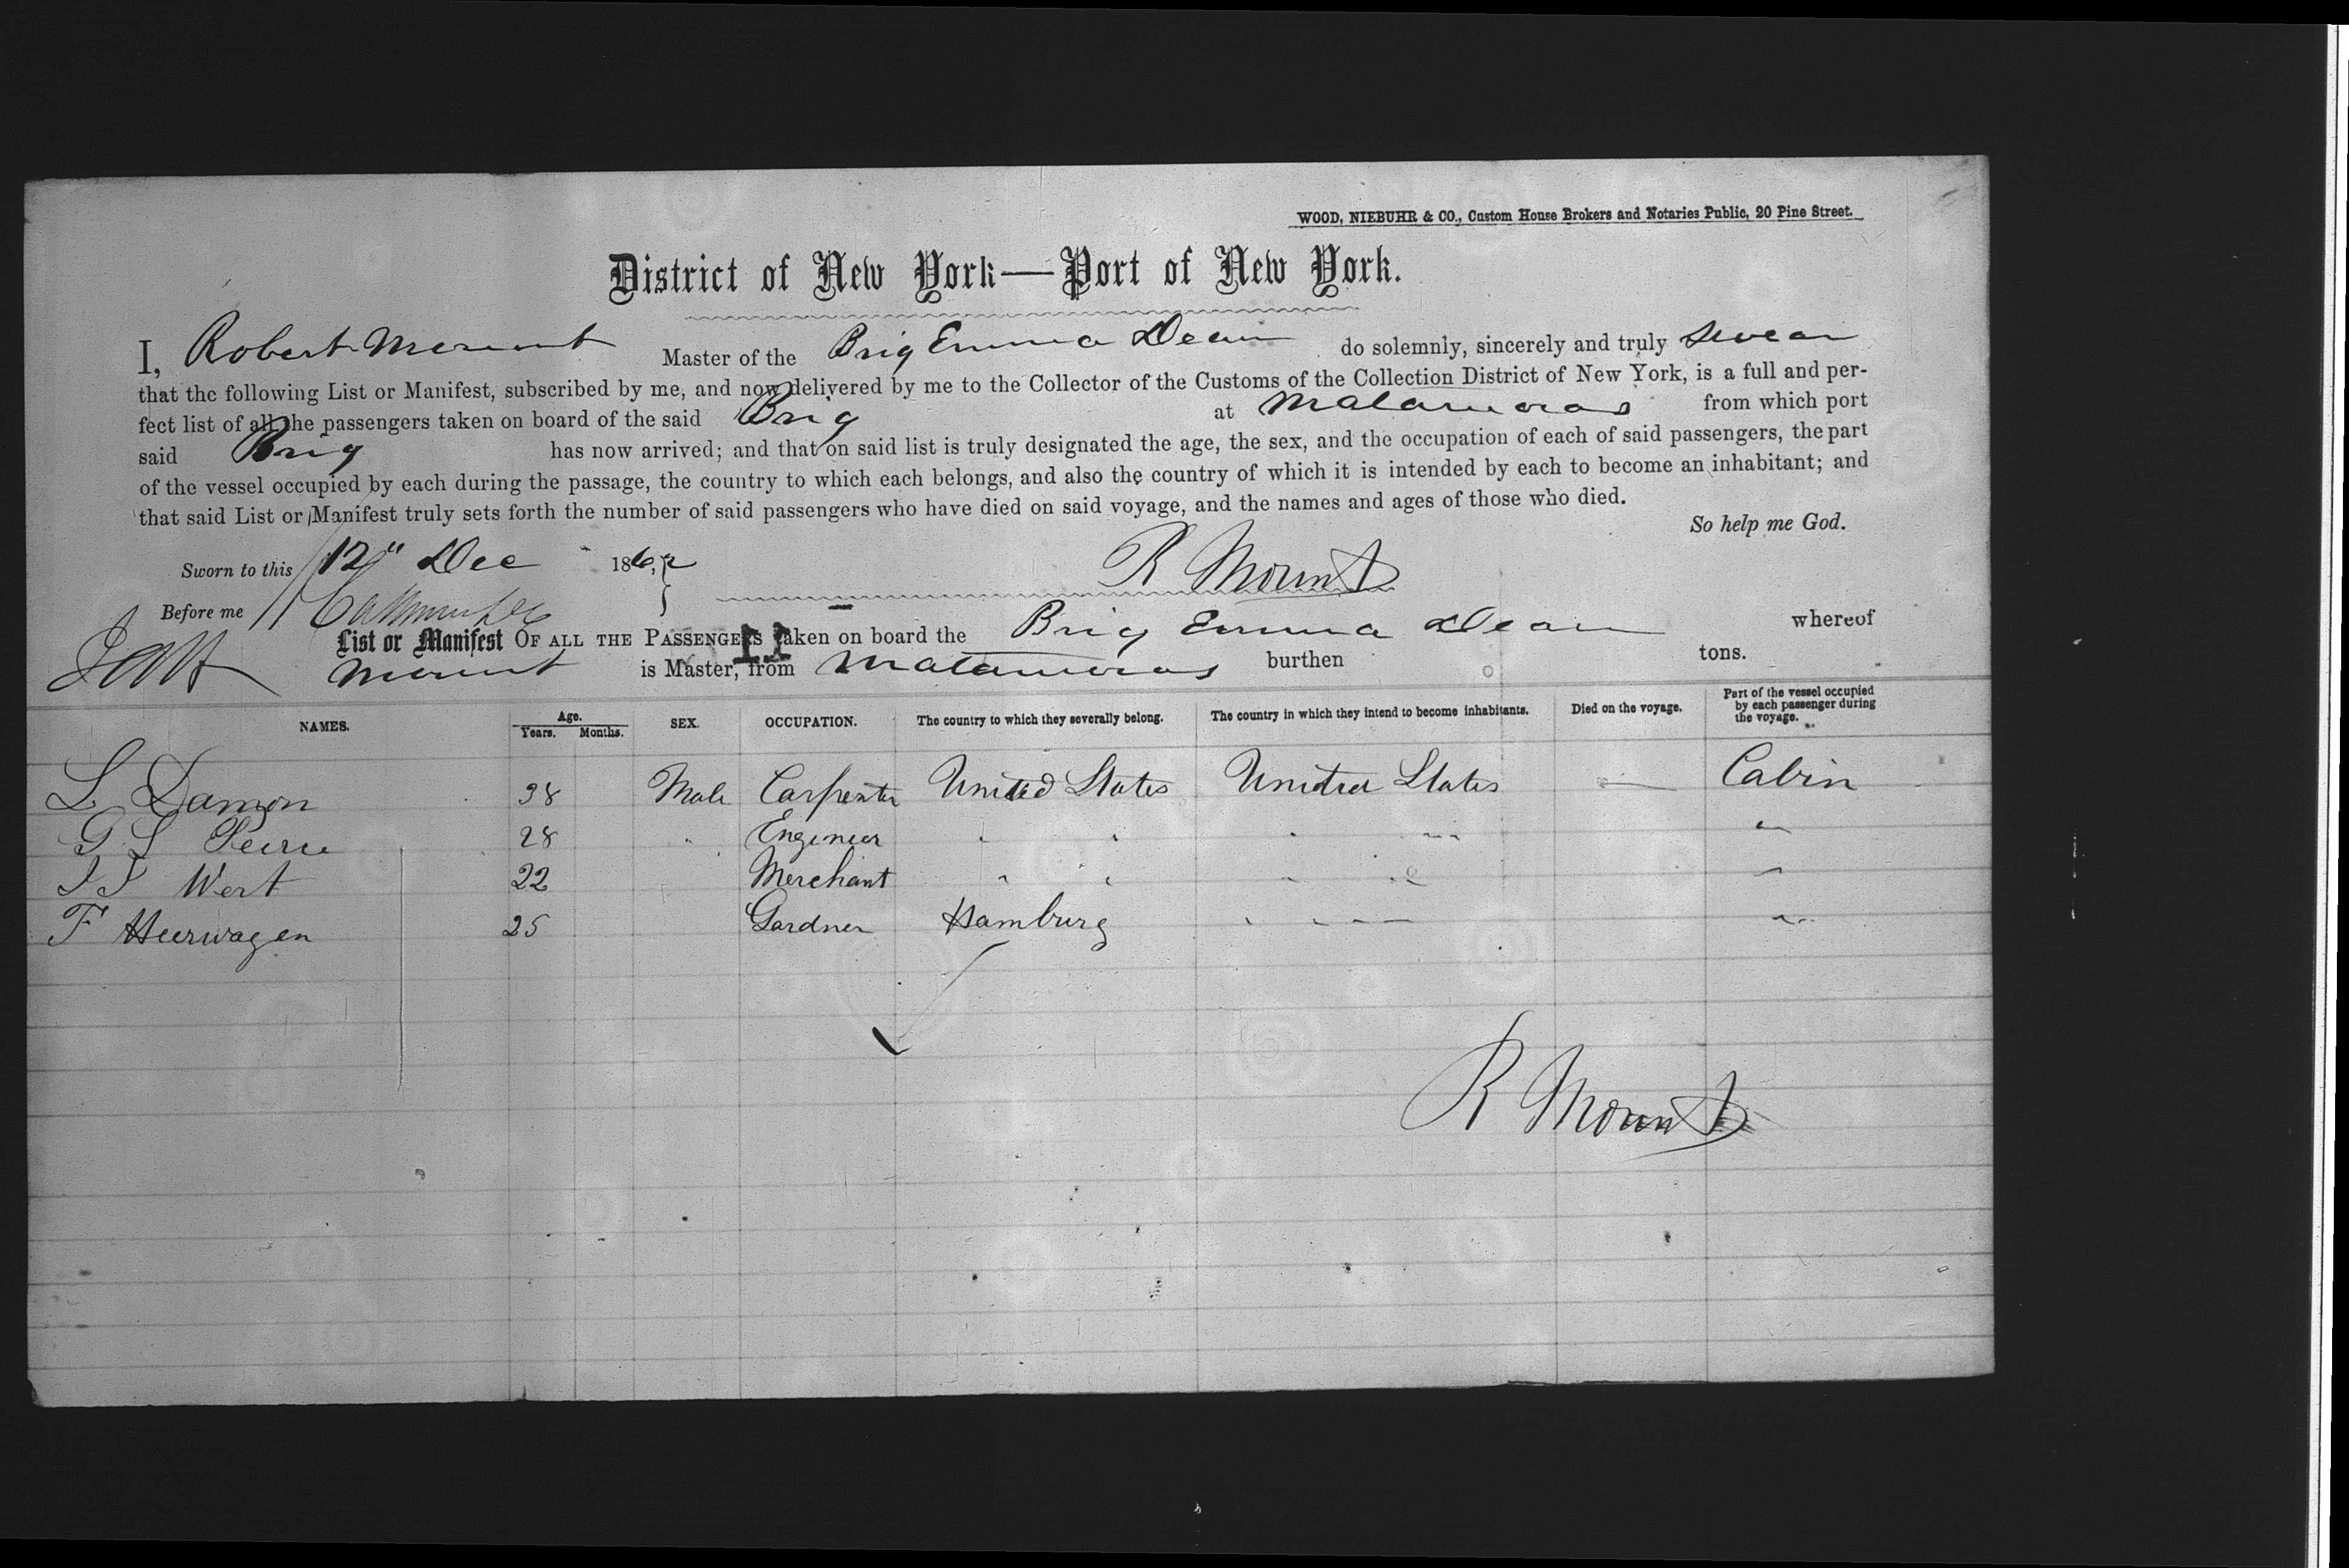 WOOD, NIEBUHR & CO., Custom House Brokers and Notaries Public, 20 Pine Street.
District of New York—Port of New York.
I, Robert Mount Master of the Brig Emma Dean do solemnly, sincerely and truly swear
that the following List or Manifest, subscribed by me, and now delivered by me to the Collector of the Customs of the Collection District of New York, is a full and per-
fect list of all the passengers taken on board of the said Brig at Matamoras from which port
said Brig has now arrived; and that on said list is truly designated the age, the sex, and the occupation of each of said passengers, the part
of the vessel occupied by each during the passage, the country to which each belongs, and also the country of which it is intended by each to become an inhabitant; and
that said List or Manifest truly sets forth the number of said passengers who have died on said voyage, and the names and ages of those who died.
So help me God.
Sworn to this 12" Dec 1862 } R Mount
Before me
List or Manifest OF ALL THE PASSENGERS taken on board the Brig Emma Dean whereof
Mount is Master, from Matamoras burthen tons.
NAMES. Age. Years. Months. SEX. OCCUPATION. The country to which they severally belong. The country in which they intend to become inhabitants. Died on the voyage. Part of the vessel occupied by each passenger during the voyage.
L Damon 38 Male Carpenter United States United States — Cabin
G L Peirce 28 " Engineer " " " " "
22 Merchant " " " " "
F Heerwagen 25 Gardner Hamburg " " "
R Mount